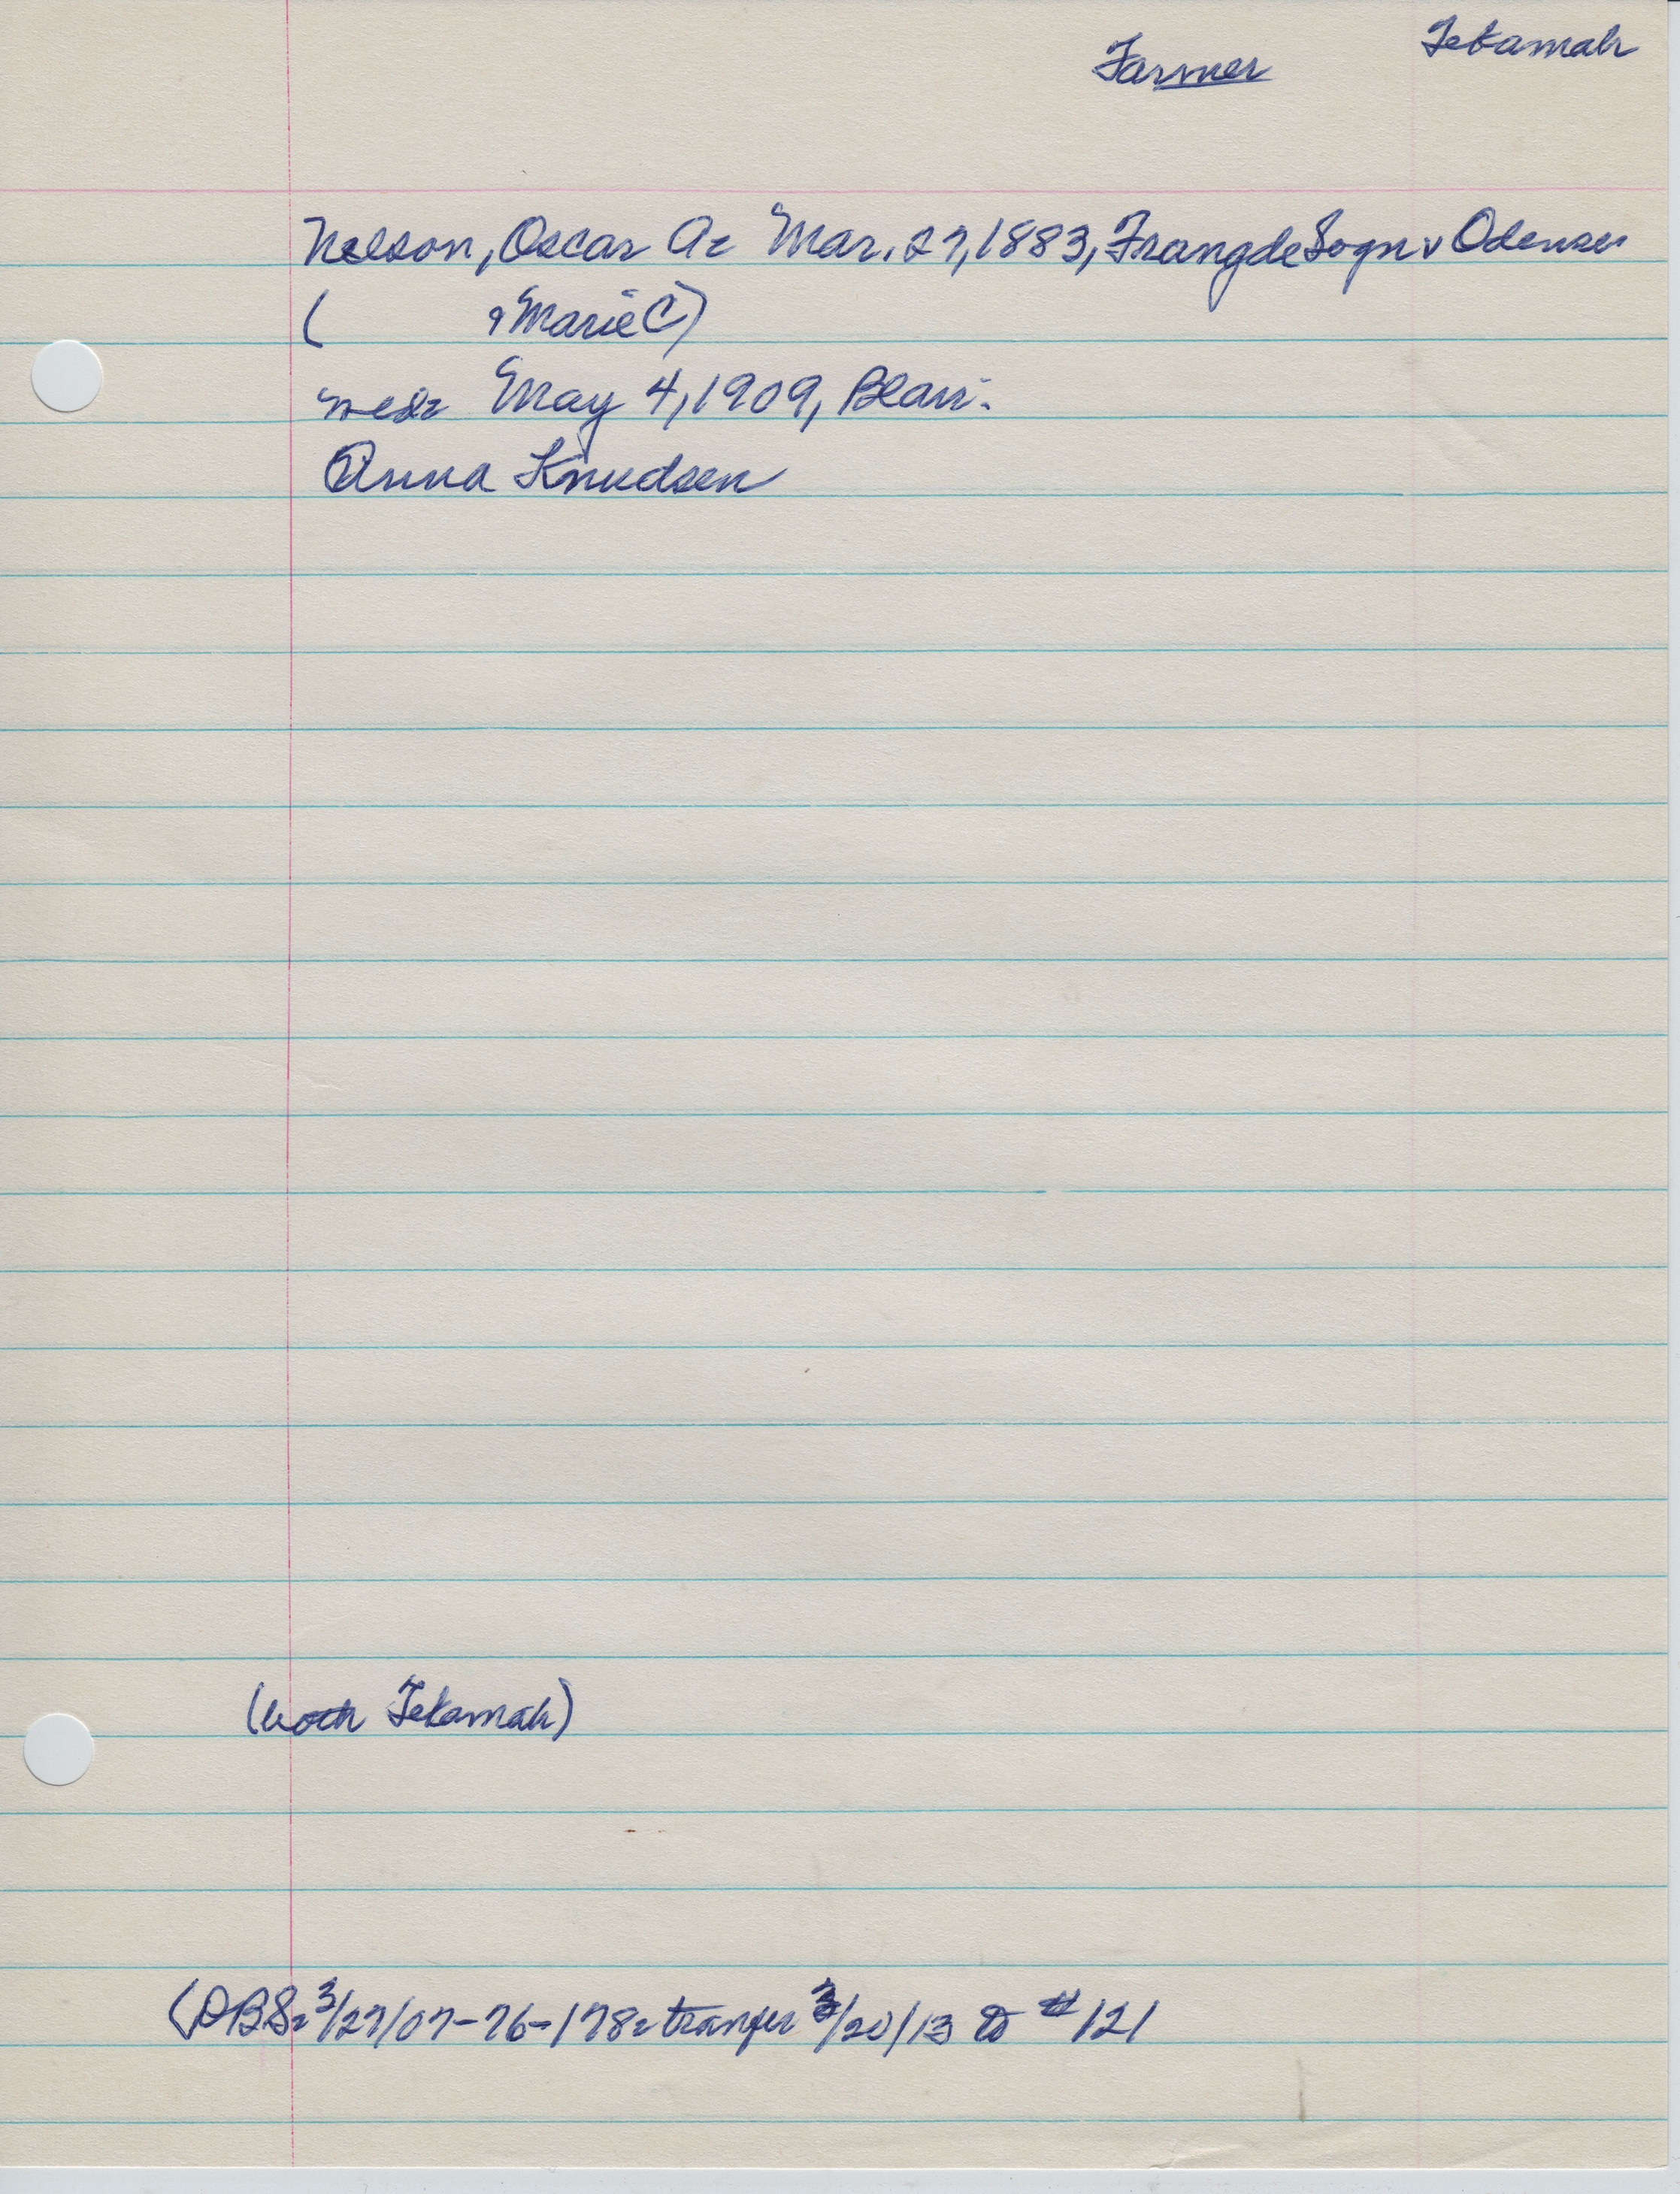 Tekamah
Farmer
Nelson, Oscar A: Mar. 27, 1883, Frangde Sogn v Odense
( & Marie C)
wed: May 4, 1909, Blair.
Anna Knudsen
(both Tekamah)
(DBS: 3/27/07-76-178: tranfer 3/20/13 to #121